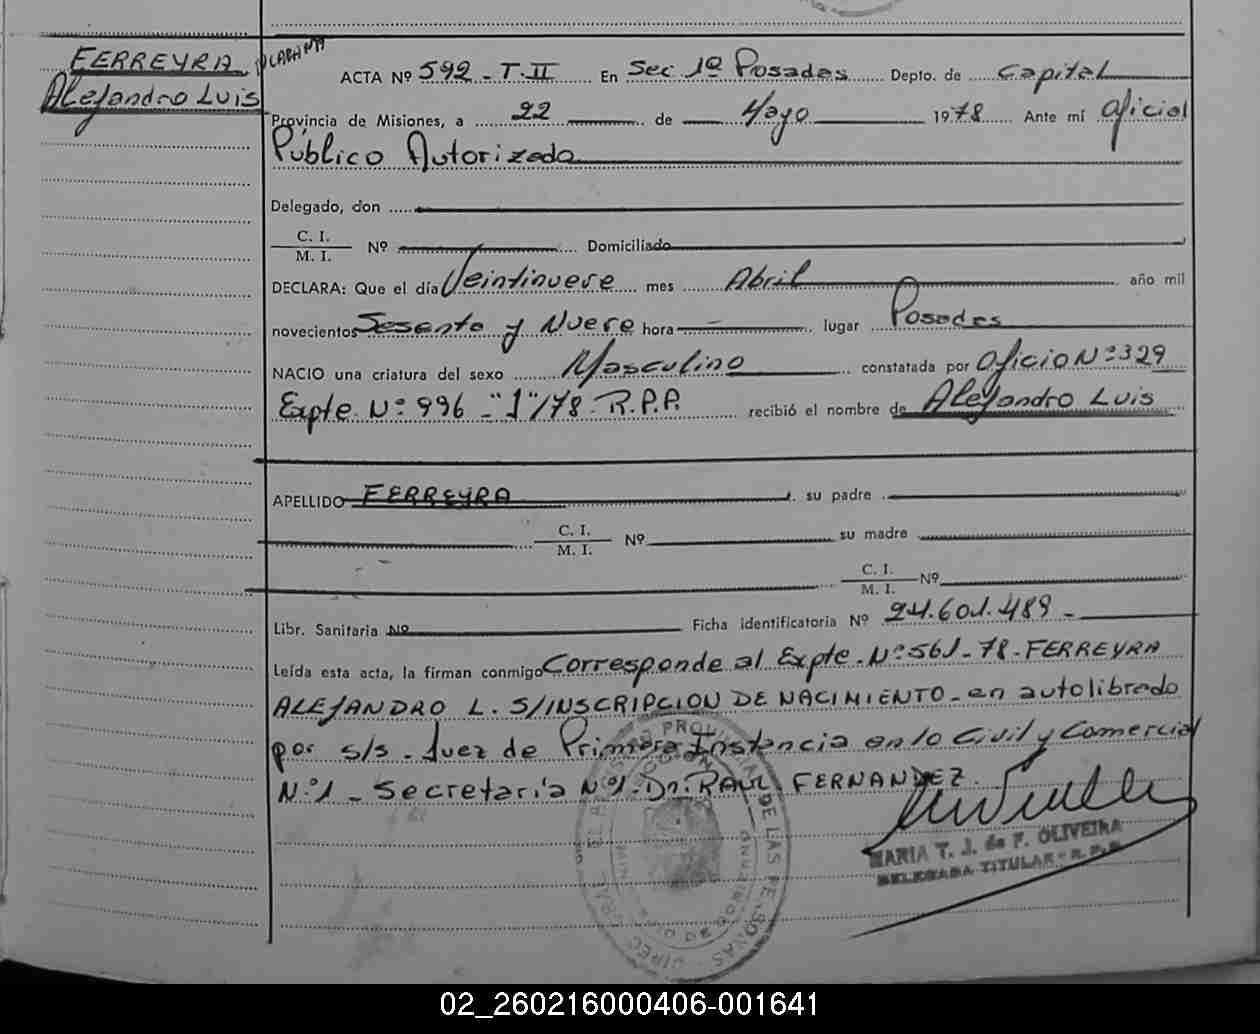 FERREYRA
Alejandro Luis
ACTA Nº 592 - T. II En Sec 1º Posadas Depto. de Capital
Provincia de Misiones, a 22 de Mayo 1978 Ante mí Oficial
Público Autorizado
Delegado, don
C. I.
M. I. Nº Domiciliado
DECLARA: Que el día Veintinueve mes Abril año mil
novecientos Sesenta y Nueve hora lugar Posadas
NACIO una criatura del sexo Masculino constatada por Oficio Nº 329
Expte. Nº 996 - "1"/78 - R.P.P. recibió el nombre de Alejandro Luis
APELLIDO FERREYRA su padre
C. I.
M. I. Nº su madre
C. I.
M. I. Nº
Libr. Sanitaria Nº Ficha identificatoria Nº 24.601.489 -
Leída esta acta, la firman conmigo Corresponde al Expte. Nº 561 - 78 - FERREYRA
ALEJANDRO L. S/INSCRIPCION DE NACIMIENTO - en auto librado
por S/S. Juez de Primera Instancia en lo Civil y Comercial
Nº 1 - Secretaría Nº 1. Dr. RAUL FERNANDEZ.
MARIA T. J. de F. OLIVEIRA
DELEGADA TITULAR - R. P. P.
DE LAS PERSONAS
02_260216000406-001641